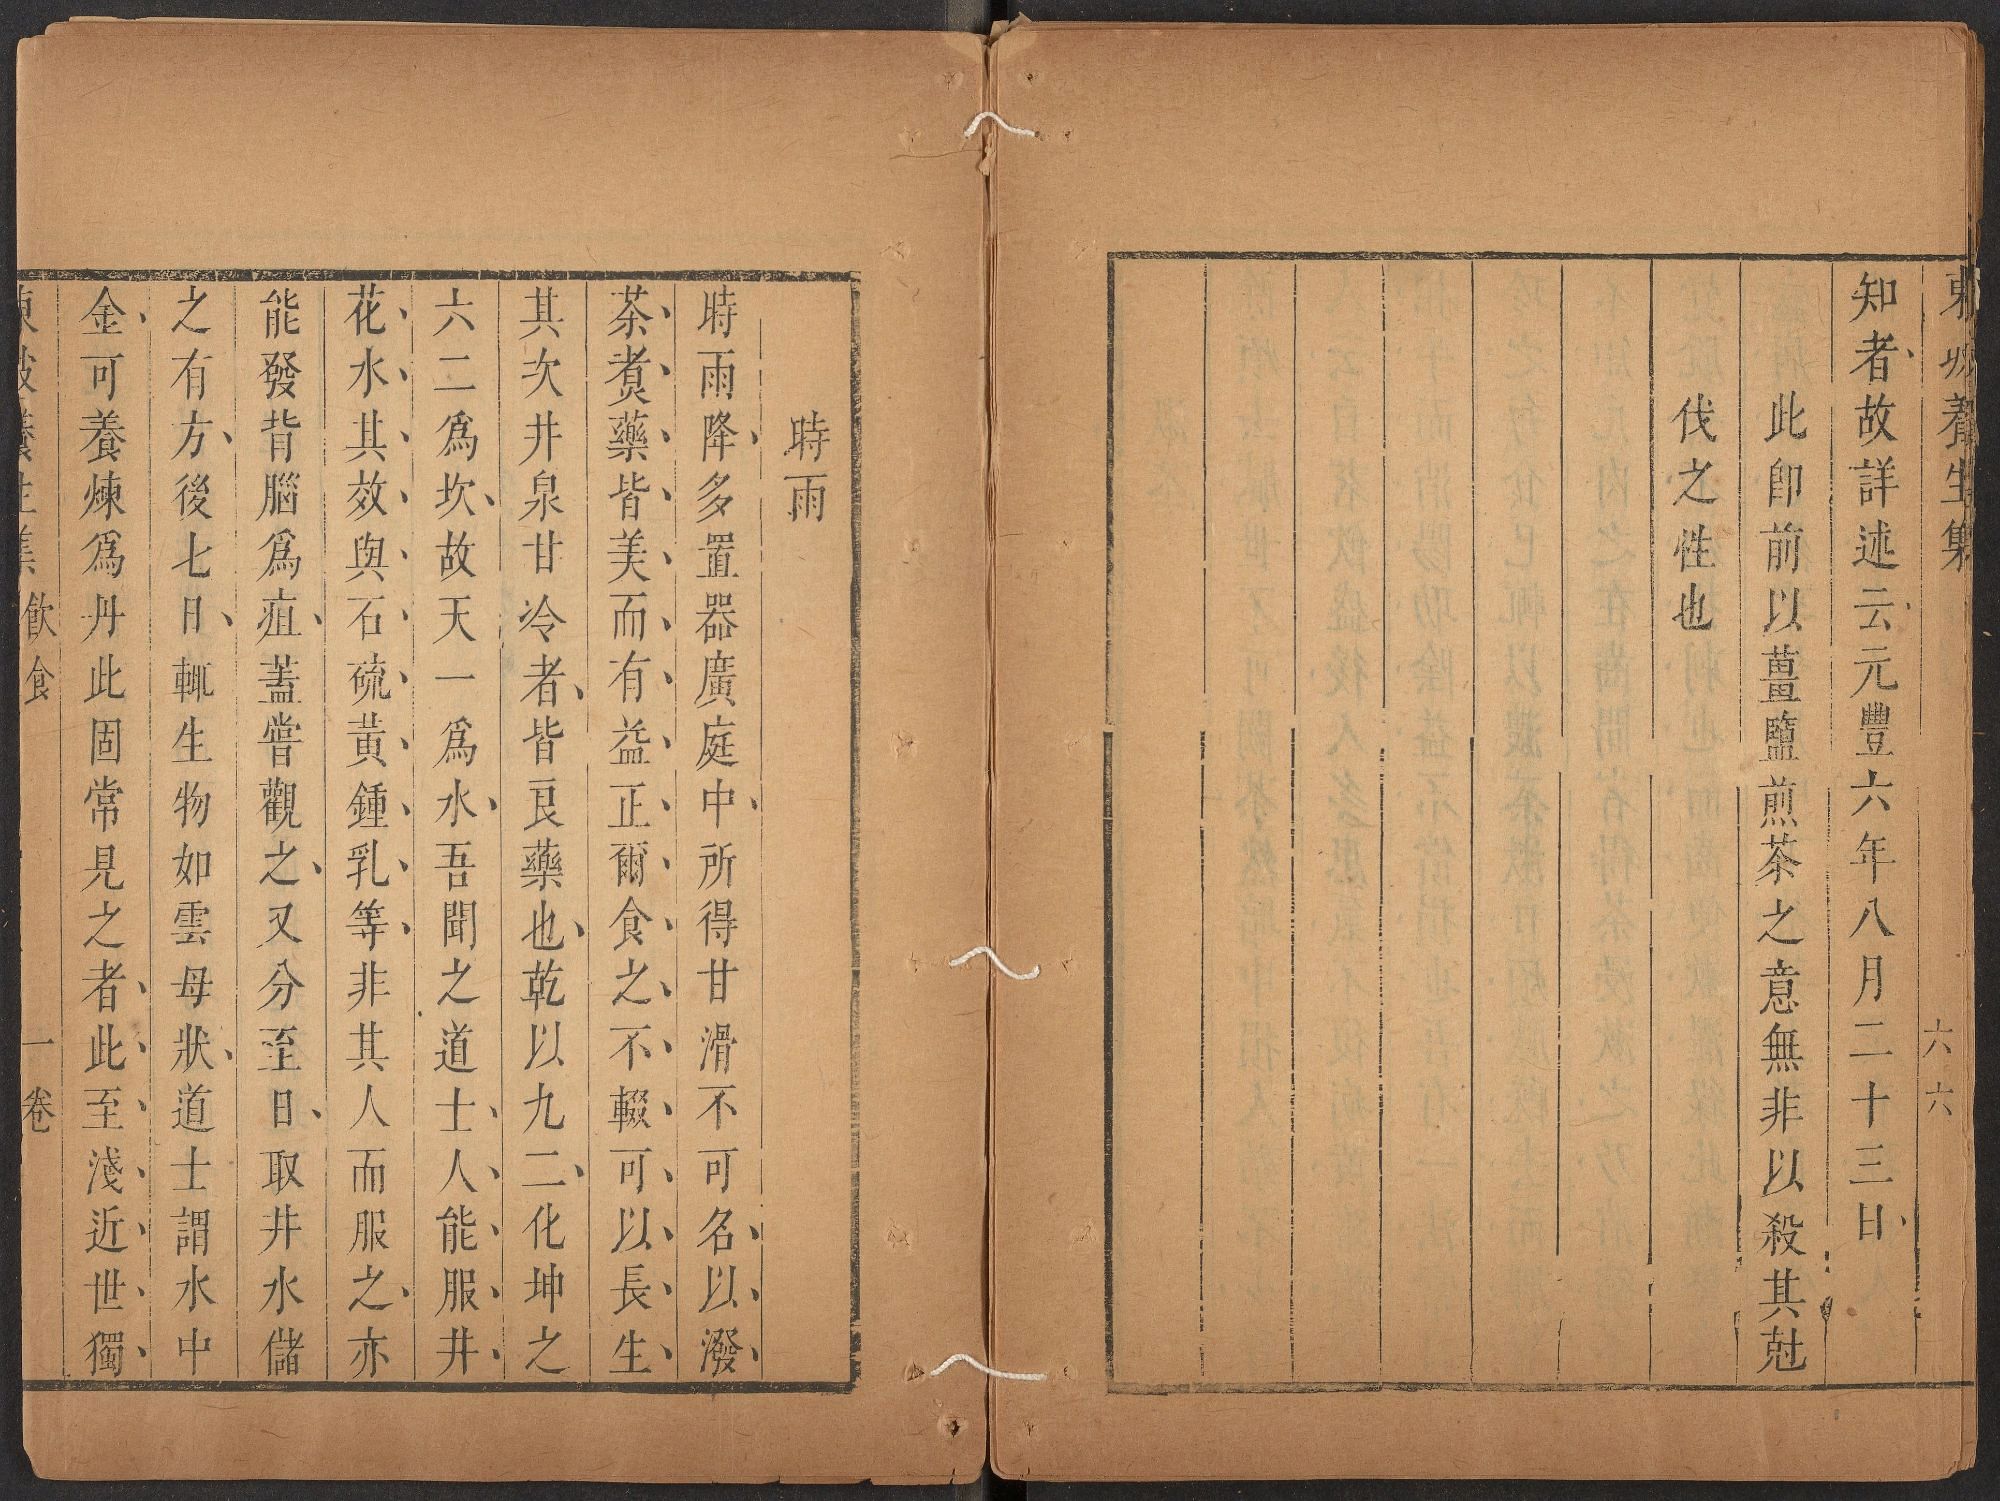 東坡養生集
六六
知者故詳述云元豐六年八月二十三日
此卽前以薑鹽煎茶之意無非以殺其尅
伐之性也
時雨
時雨降多置器廣庭中所得甘滑不可名以潑
茶煑藥皆美而有益正爾食之不輟可以長生
其次井泉甘冷者皆良藥也乾以九二化坤之
六二爲坎故天一爲水吾聞之道士人能服井
花水其效與石硫黃鍾乳等非其人而服之亦
能發背腦爲疽蓋嘗觀之又分至日取井水儲
之有方後七日輒生物如雲母狀道士謂水中
金可養煉爲丹此固常見之者此至淺近世獨
東坡養生集
飲食
一卷